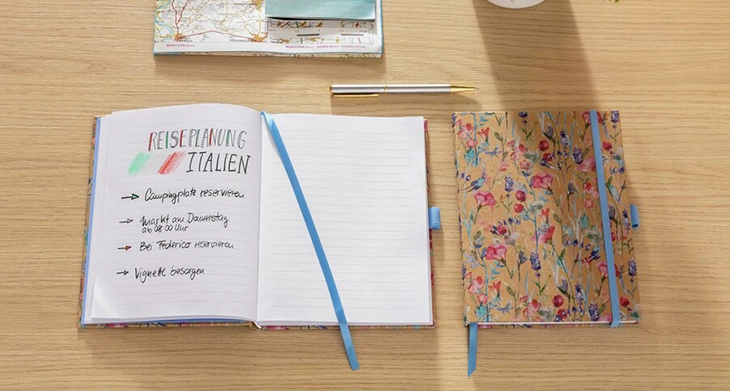 REISEPLANUNG
ITALIEN
→ Campingplatz reservieren
→ Markt am Donnerstag
ab 08:00 Uhr
→ Bei Federico reservieren
→ Vignette besorgen